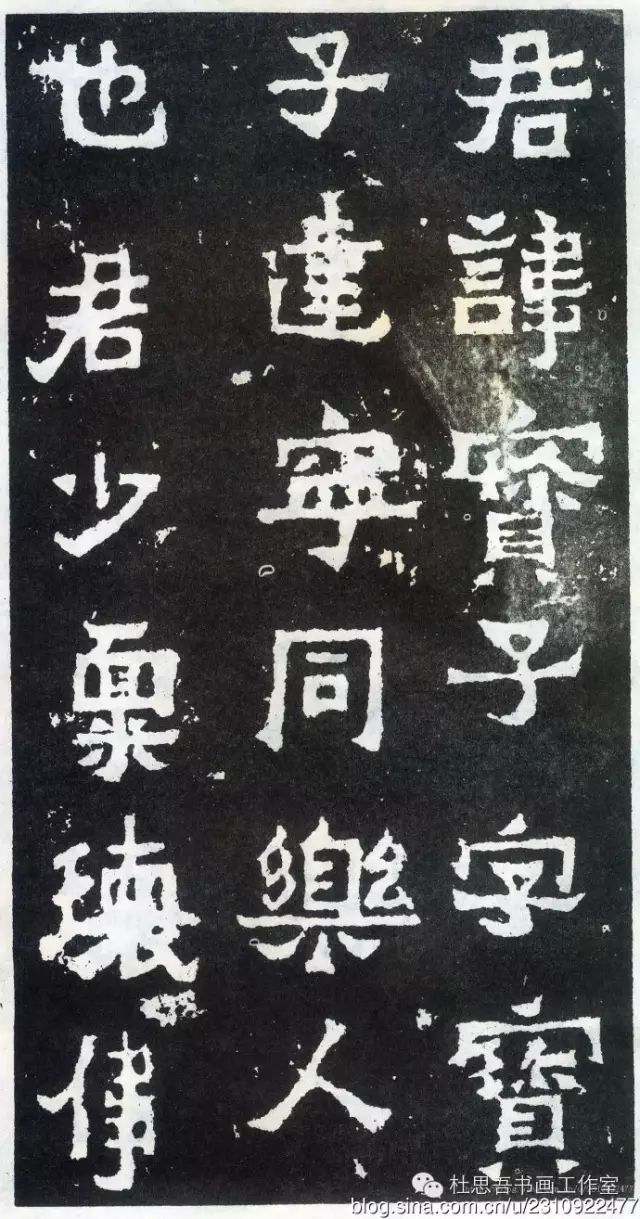 君諱寶子字寶
子建寧同樂人
也君少稟瓌偉
杜思吾书画工作室
blog.sina.com.cn/u/2310922477